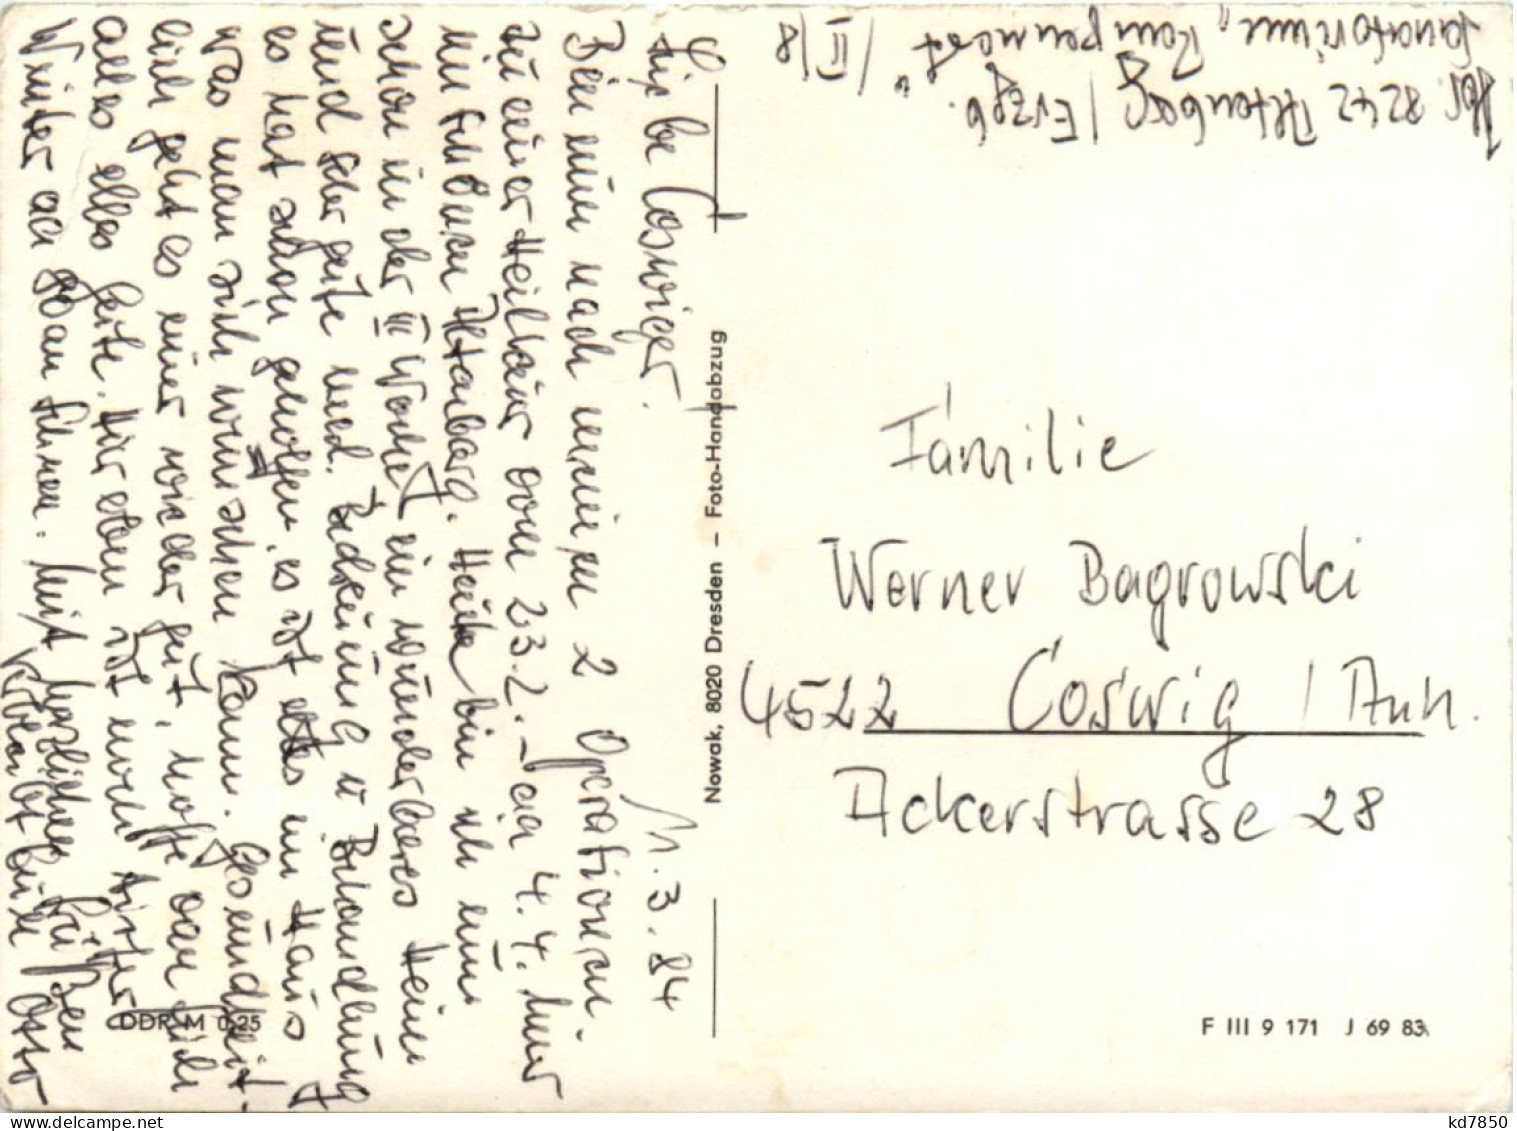 Abs. 8242 Altenberg / Erzgb.
Sanatorium „Raupennest“ / II/8
Liebe Coswiger. 11.3.84
Bin nun nach meinen 2 Operationen.
zu einer Heilkur vom 23.2. – 4.4. hier
im schönen Altenberg. Heute bin ich nun
schon in der III Woche, ein wunderbares Heim
und sehr gute med. Betreuung u Behandlung
es hat schon geholfen, es ist alles im Haus
was man sich wünschen kann. Gesundheit-
lich geht es einer wieder gut, hoffe von Euch
alles Gute. Hier oben ist noch tiefer
Winter. Mit herzlichen Grüßen
verbleibt Euer Otto
DDR M 0,25
Nowak, 8020 Dresden – Foto-Handabzug
Familie
Werner Bagrowski
4522 Coswig / Anh.
Ackerstrasse 28
F III 9 171 J 69 83
kd7850